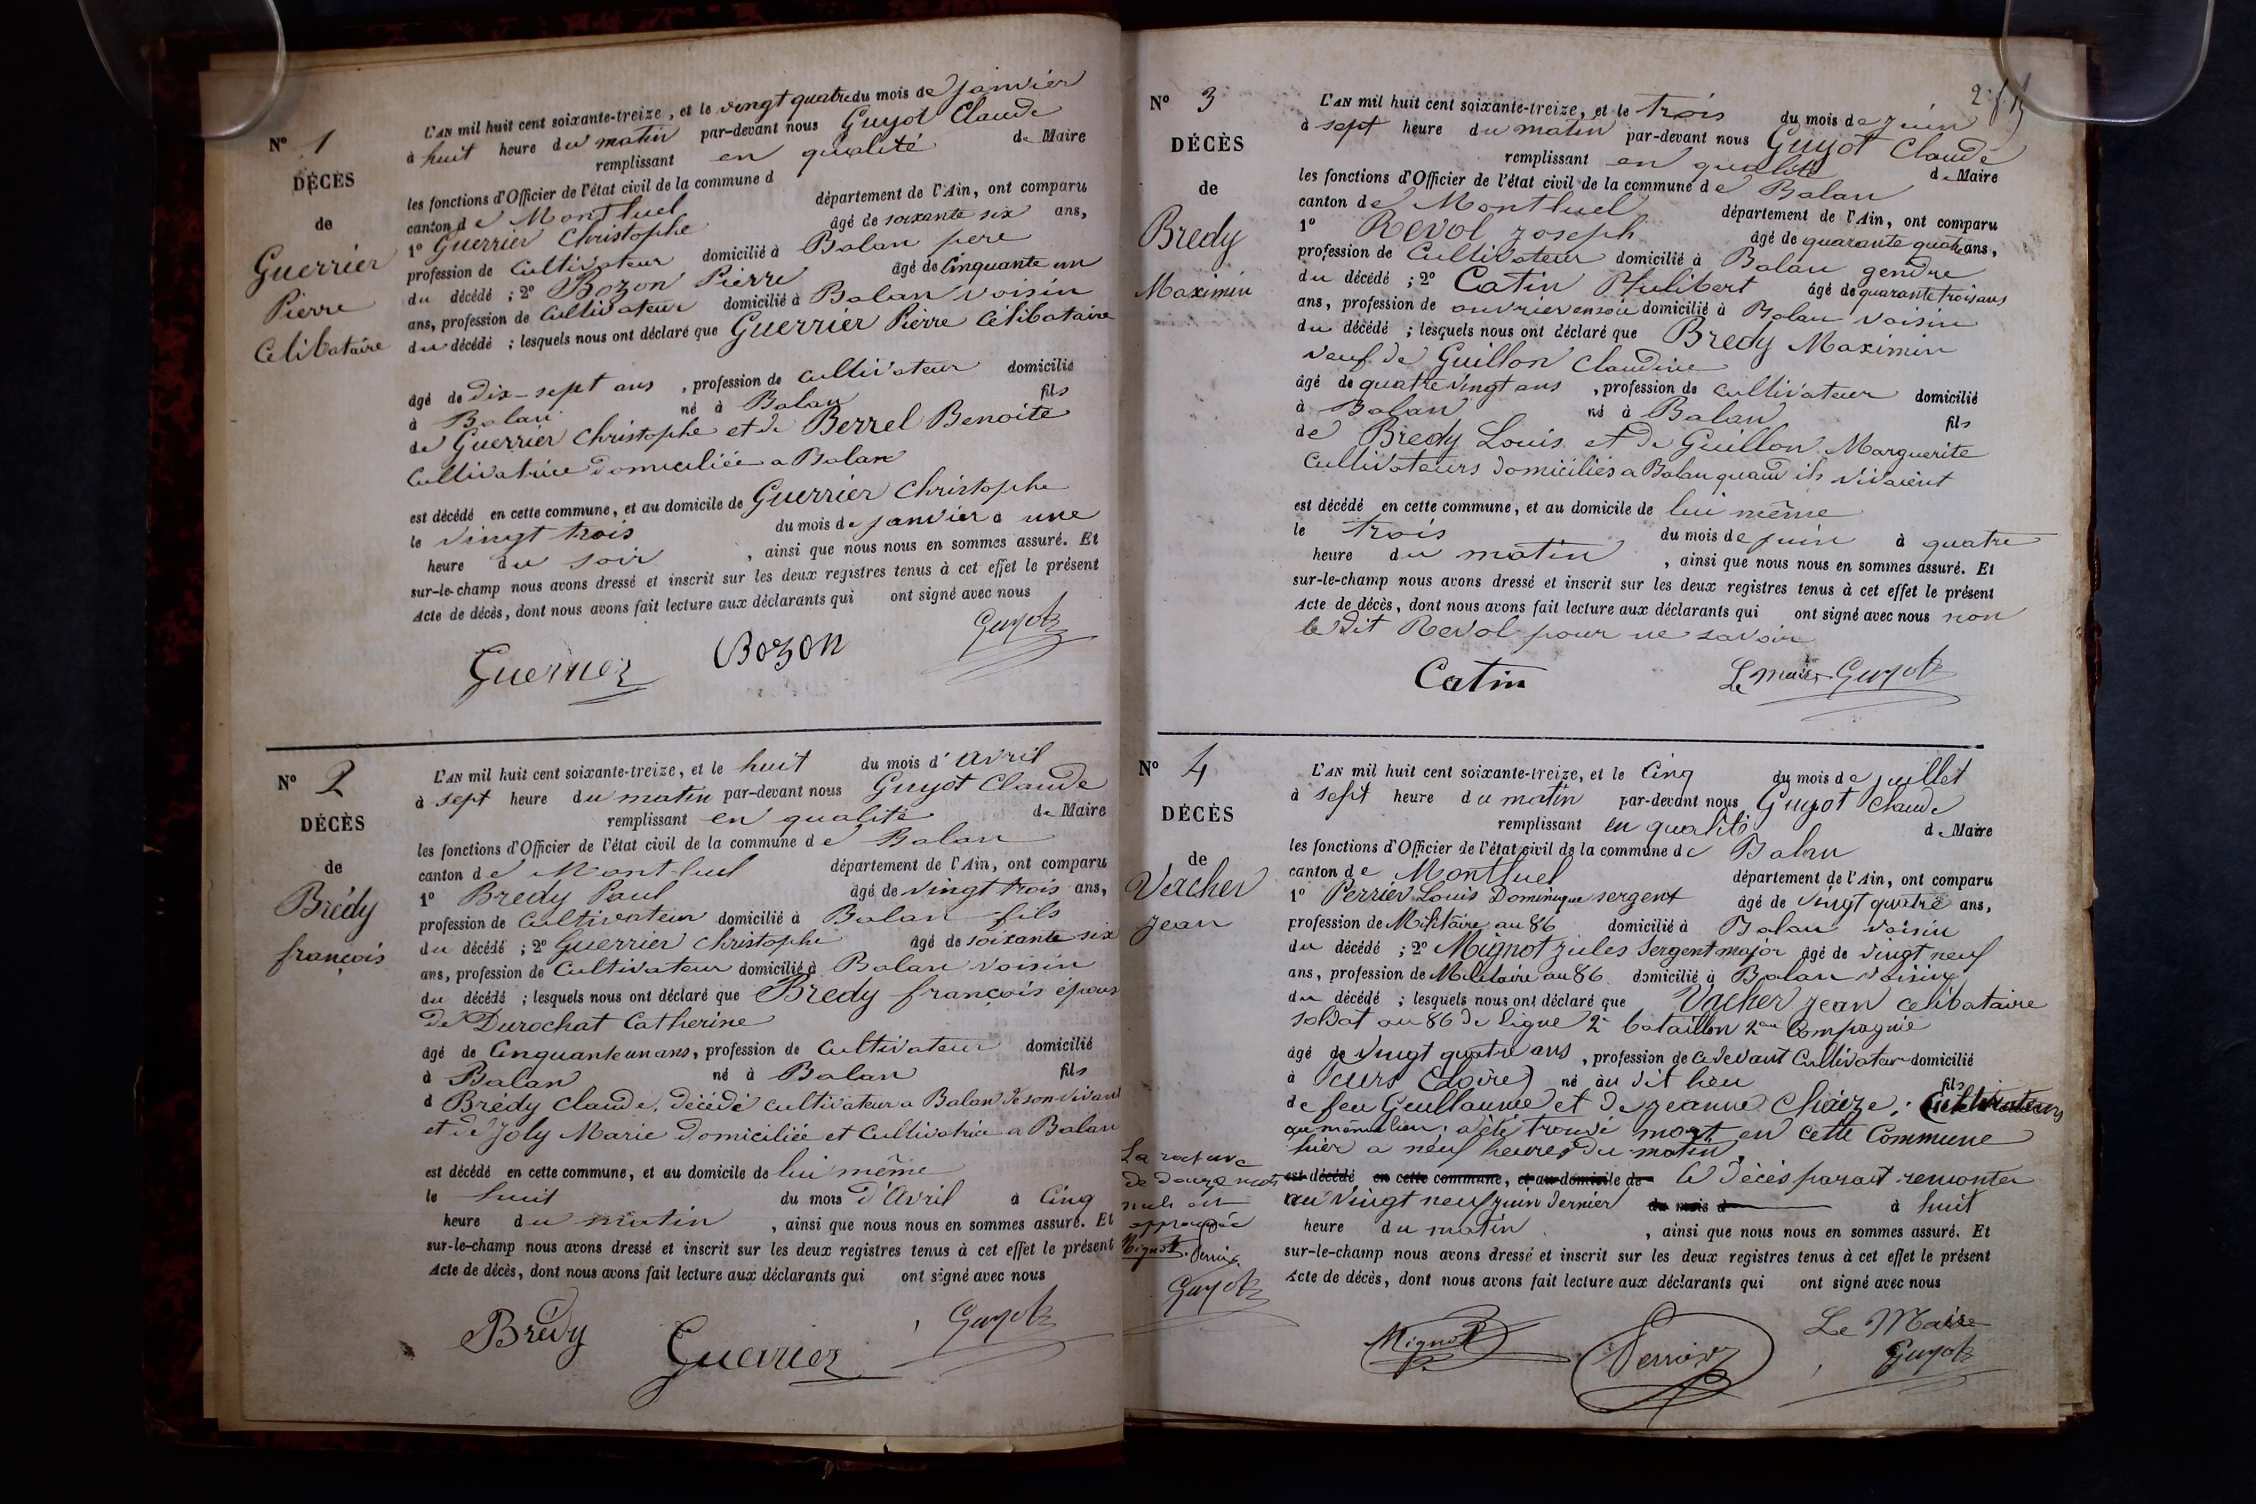 N° 1
DÉCÈS
de
Guerrier
Pierre
Celibataire
L'AN mil huit cent soixante-treize, et le vingt quatre du mois de janvier
à huit heure du matin par-devant nous Guyot Claude
remplissant en qualité de Maire
les fonctions d'Officier de l'état civil de la commune d
canton de Montluel département de l'Ain, ont comparu
1° Guerrier Christophe âgé de soixante six ans,
profession de cultivateur domicilié à Balan pere
du décédé ; 2° Bozon Pierre âgé de Cinquante un
ans, profession de Cultivateur domicilié à Balan voisin
du décédé ; lesquels nous ont déclaré que Guerrier Pierre Célibataire
âgé de dix-sept ans, profession de cultivateur domicilié
à Balan né à Balan fils
de Guerrier Christophe et de Berrel Benoite
Cultivatrice domiciliée a Balan
est décédé en cette commune, et au domicile de Guerrier Christophe
le vingt trois du mois de janvier à une
heure du soir, ainsi que nous nous en sommes assuré. Et
sur-le-champ nous avons dressé et inscrit sur les deux registres tenus à cet effet le présent
Acte de décès, dont nous avons fait lecture aux déclarants qui ont signé avec nous
Guerrier Bozon Guyot
N° 2
DÉCÈS
de
Brédy
françois
L'AN mil huit cent soixante-treize, et le huit du mois d'Avril
à sept heure du matin par-devant nous Guyot Claude
remplissant en qualité de Maire
les fonctions d'Officier de l'état civil de la commune de Balan
canton de Montluel département de l'Ain, ont comparu
1° Bredy Paul âgé de vingt trois ans,
profession de Cultivateur domicilié à Balan fils
du décédé ; 2° Guerrier Christophe âgé de soixante six
ans, profession de Cultivateur domicilié à Balan voisin
du décédé ; lesquels nous ont déclaré que Bredy françois époux
de Durochat Catherine
âgé de Cinquante un ans, profession de Cultivateur domicilié
à Balan né à Balan fils
d Brédy Claude, décédé cultivateur a Balan de son vivant
et de Joly Marie domiciliée et Cultivatrice a Balan
est décédé en cette commune, et au domicile de lui même
le huit du mois d'Avril à Cinq
heure du matin, ainsi que nous nous en sommes assuré. Et
sur-le-champ nous avons dressé et inscrit sur les deux registres tenus à cet effet le présent
Acte de décès, dont nous avons fait lecture aux déclarants qui ont signé avec nous
Brédy Guerrier Guyot
2. f
N° 3
DÉCÈS
de
Bredy
Maximin
L'AN mil huit cent soixante-treize, et le trois du mois de juin
à sept heure du matin par-devant nous Guyot Claude
remplissant en qualité de Maire
les fonctions d'Officier de l'état civil de la commune de Balan
canton de Montluel département de l'Ain, ont comparu
1° Revol Joseph âgé de quarante quatre ans,
profession de Cultivateur domicilié à Balan gendre
du décédé ; 2° Catin Philibert âgé de quarante trois ans
ans, profession de ouvrier en soie domicilié à Balan voisin
du décédé ; lesquels nous ont déclaré que Bredy Maximin
veuf de Guillon Claudine
âgé de quatre vingt ans, profession de cultivateur domicilié
à Balan né à Balan fils
de Bredy Louis et de Guillon Marguerite
Cultivateurs domiciliés a Balan quand ils vivaient
est décédé en cette commune, et au domicile de lui même
le trois du mois de juin à quatre
heure du matin, ainsi que nous nous en sommes assuré. Et
sur-le-champ nous avons dressé et inscrit sur les deux registres tenus à cet effet le présent
Acte de décès, dont nous avons fait lecture aux déclarants qui ont signé avec nous non
le dit Revol pour ne savoir
Catin Le Maire Guyot
N° 4
DÉCÈS
de
Vacher
Jean
L'AN mil huit cent soixante-treize, et le Cinq du mois de juillet
à sept heure du matin par-devant nous Guyot Claude
remplissant en qualité de Maire
les fonctions d'Officier de l'état civil de la commune de Balan
canton de Montluel département de l'Ain, ont comparu
1° Perrier Louis Dominique sergent âgé de vingt quatre ans,
profession de Militaire au 86 domicilié à Balan voisin
du décédé ; 2° Mignot Jules Sergent major âgé de vingt neuf
ans, profession de Militaire au 86 domicilié à Balan voisin
du décédé ; lesquels nous ont déclaré que Vacher Jean celibataire
soldat au 86 de ligne 2e bataillon 2eme Compagnie
âgé de vingt quatre ans, profession de ci devant Cultivateur domicilié
à Curs (Loire) né au dit lieu fils
de feu Guillaume et de Jeanne Chaize; Cultivateurs
au même lieu, a été trouvé mort en cette Commune
hier a neuf heures du matin.
est décédé en cette commune, et au domicile de le décès parait remonter
au vingt neuf juin dernier du mois d à huit
heure du matin, ainsi que nous nous en sommes assuré. Et
sur-le-champ nous avons dressé et inscrit sur les deux registres tenus à cet effet le présent
Acte de décès, dont nous avons fait lecture aux déclarants qui ont signé avec nous
La rature
de douze mots
nuls est
approuvée
Mignot Perrier
Guyot
Mignot Perrier Le Maire
Guyot